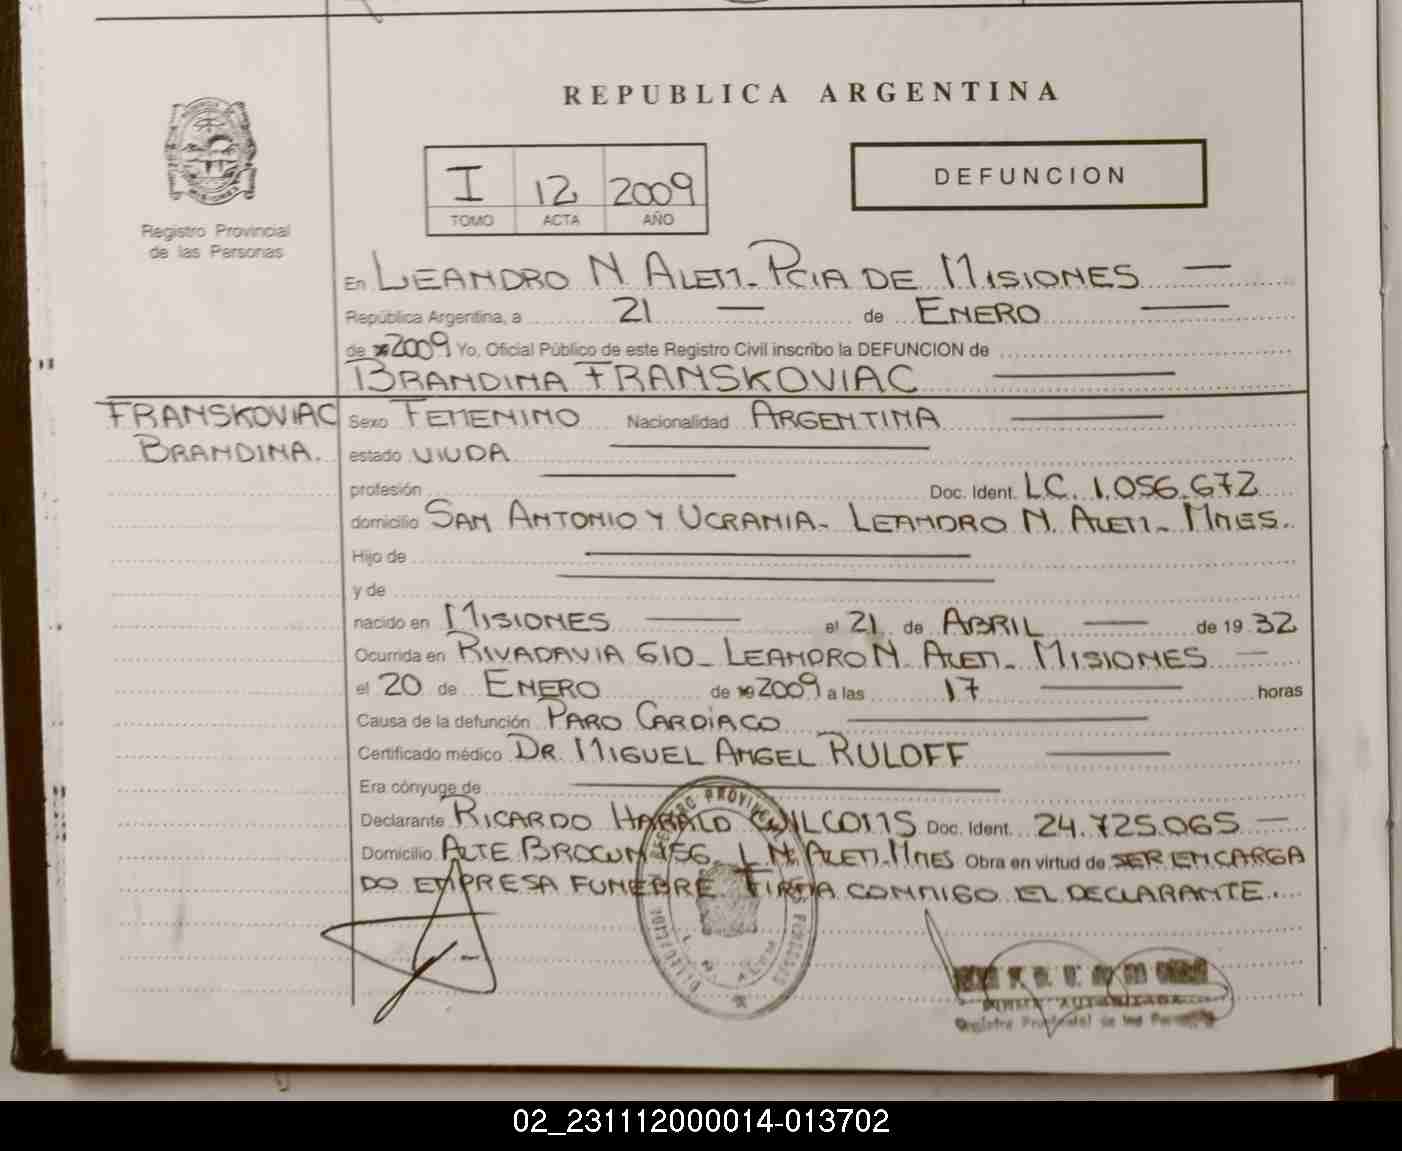 REPUBLICA ARGENTINA
I 12 2009
TOMO ACTA AÑO
DEFUNCION
Registro Provincial
de las Personas
En LEANDRO N. ALEM - PCIA DE MISIONES
República Argentina, a 21 de ENERO
de 2009 Yo, Oficial Público de este Registro Civil inscribo la DEFUNCION de
BRANDINA FRANSKOVIAC
FRANSKOVIAC
BRANDINA.
Sexo FEMENINO Nacionalidad ARGENTINA
estado VIUDA
profesión Doc. Ident. LC. 1.056.672
domicilio SAN ANTONIO Y UCRANIA - LEANDRO N. ALEM - MNES.
Hijo de
y de
nacido en MISIONES el 21 de ABRIL de 19 32
Ocurrida en RIVADAVIA 610 - LEANDRO N. ALEM - MISIONES
el 20 de ENERO de 2009 a las 17 horas
Causa de la defunción PARO CARDIACO
Certificado médico DR. MIGUEL ANGEL RULOFF
Era cónyuge de
Declarante RICARDO HARALD Doc. Ident. 24.725.065
Domicilio ALTE BROWN 156 L. N. ALEM - MNES Obra en virtud de SER ENCARGA
DO EMPRESA FUNEBRE. FIRMA CONMIGO EL DECLARANTE.
REGISTRO PROVINCIAL
PERSONAS
Registro Provincial de las Personas
02_231112000014-013702